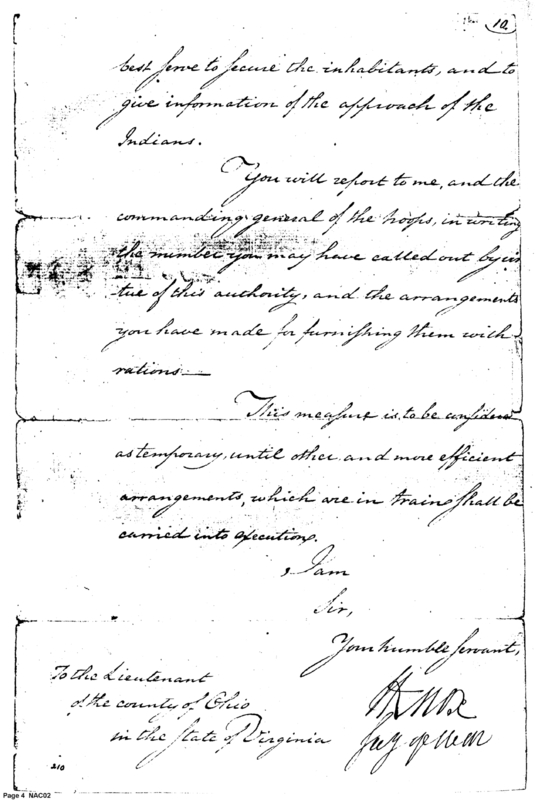 10
best serve to secure the inhabitants, and to
give information of the approach of the
Indians.
You will report to me, and the
commanding general of the troops, in writing
the number you may have called out by vir
tue of this authority, and the arrangements
you have made for furnishing them with
rations—
This measure is to be considered
as temporary, until other and more efficient
arrangements, which are in train shall be
carried into execution.
I am
Sir,
Your humble servant,
To the Lieutenant
of the county of Ohio
in the State of Virginia
H Knox
Secy of War
210
Page 4 NAC02